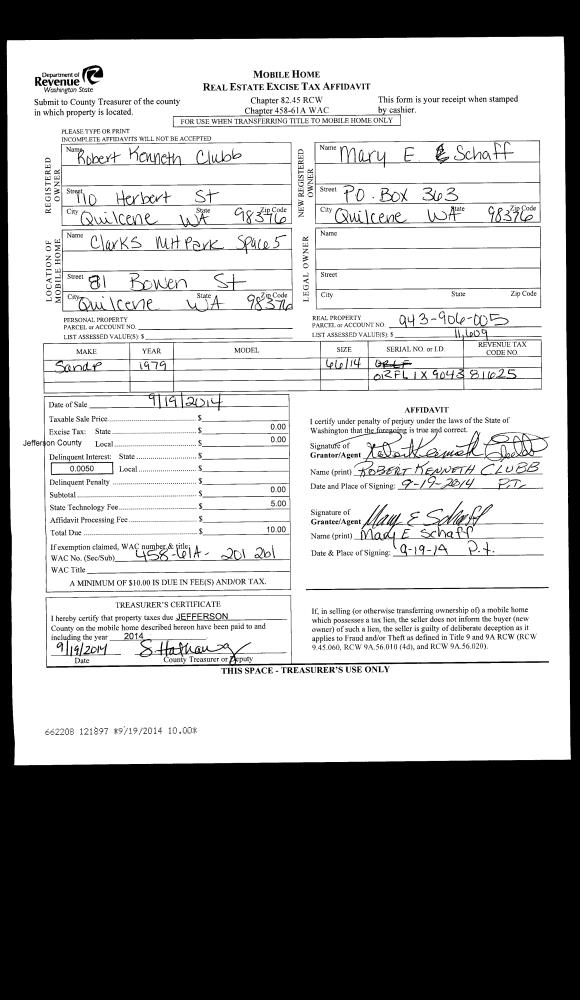 Department of
Revenue
Washington State
MOBILE HOME
REAL ESTATE EXCISE TAX AFFIDAVIT
Submit to County Treasurer of the county
in which property is located.
Chapter 82.45 RCW
Chapter 458-61A WAC
This form is your receipt when stamped
by cashier.
FOR USE WHEN TRANSFERRING TITLE TO MOBILE HOME ONLY
PLEASE TYPE OR PRINT
INCOMPLETE AFFIDAVITS WILL NOT BE ACCEPTED
REGISTERED OWNER
Name Robert Kenneth Clubb
Street 110 Herbert St
City Quilcene State WA Zip Code 98376
NEW REGISTERED OWNER
Name Mary E Schaff
Street P.O. Box 363
City Quilcene State WA Zip Code 98376
LOCATION OF MOBILE HOME
Name Clarks MH Park Space 5
Street 81 Bowen St
City Quilcene State WA Zip Code 98376
LEGAL OWNER
Name
Street
City State Zip Code
PERSONAL PROPERTY
PARCEL or ACCOUNT NO.
LIST ASSESSED VALUE(S): $
REAL PROPERTY
PARCEL or ACCOUNT NO. 943-906-005
LIST ASSESSED VALUE(S): $ 11,609
MAKE YEAR MODEL SIZE SERIAL NO. or I.D. REVENUE TAX CODE NO.
Sandp 1979 66/14
ORFL1X904381625
Date of Sale 9/19/2014
Taxable Sale Price $
Excise Tax: State $ 0.00
Jefferson County Local $ 0.00
Delinquent Interest: State $
0.0050 Local $
Delinquent Penalty $
Subtotal $ 0.00
State Technology Fee $ 5.00
Affidavit Processing Fee $
Total Due $ 10.00
If exemption claimed, WAC number & title:
WAC No. (Sec/Sub) 458-61A- 201 2b1
WAC Title
A MINIMUM OF $10.00 IS DUE IN FEE(S) AND/OR TAX.
AFFIDAVIT
I certify under penalty of perjury under the laws of the State of
Washington that the foregoing is true and correct.
Signature of
Grantor/Agent
Name (print) ROBERT KENNETH CLUBB
Date and Place of Signing: 9-19-2014 P.T.
Signature of
Grantee/Agent Mary E Schaff
Name (print) Mary E Schaff
Date & Place of Signing: 9-19-14 P.t.
TREASURER'S CERTIFICATE
I hereby certify that property taxes due JEFFERSON
County on the mobile home described hereon have been paid to and
including the year 2014
9/19/2014
Date County Treasurer or Deputy
If, in selling (or otherwise transferring ownership of) a mobile home
which possesses a tax lien, the seller does not inform the buyer (new
owner) of such a lien, the seller is guilty of deliberate deception as it
applies to Fraud and/or Theft as defined in Title 9 and 9A RCW (RCW
9.45.060, RCW 9A.56.010 (4d), and RCW 9A.56.020).
THIS SPACE - TREASURER'S USE ONLY
662208 121897 *9/19/2014 10.00*